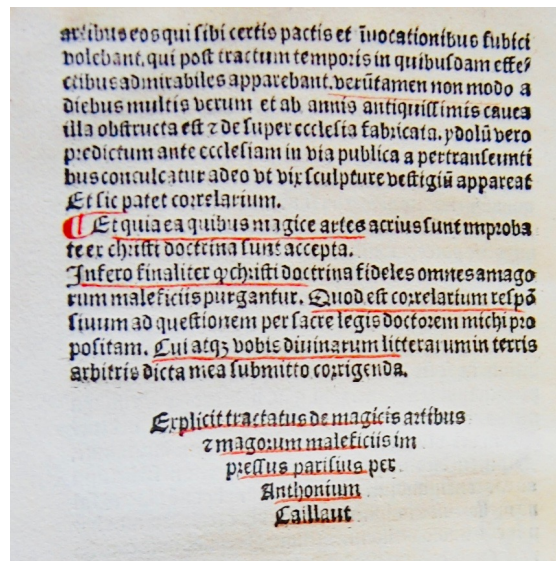 artibus eos qui sibi certis pactis et īuocationibus subici
volebant, qui post tractum temporis in quibusdam effe⸗
ctibus admirabiles apparebant, verūtamen non modo a
diebus multis verum et ab annis antiquissimis cauea
illa obstructa est ⁊ de super ecclesia fabricata. ydolū vero
predictum ante ecclesiam in via publica a pertranseunti
bus conculcatur adeo vt vix sculpture vestigiū appareat
Et sic patet correlarium.
¶ Et quia ea quibus magice artes acrius sunt improba
te ex christi doctrina sunt accepta.
Infero finaliter ꝙ christi doctrina fideles omnes a mago
rum maleficiis purgantur. Quod est correlarium respō
siuum ad questionem per sacre legis doctorem michi pro
positam. Cui atqꝫ vobis diuinarum litterarum in terris
arbitris dicta mea submitto corrigenda.
Explicit tractatus de magicis artibus
⁊ magorum maleficiis im
pressus parisius per
Anthonium
Caillaut